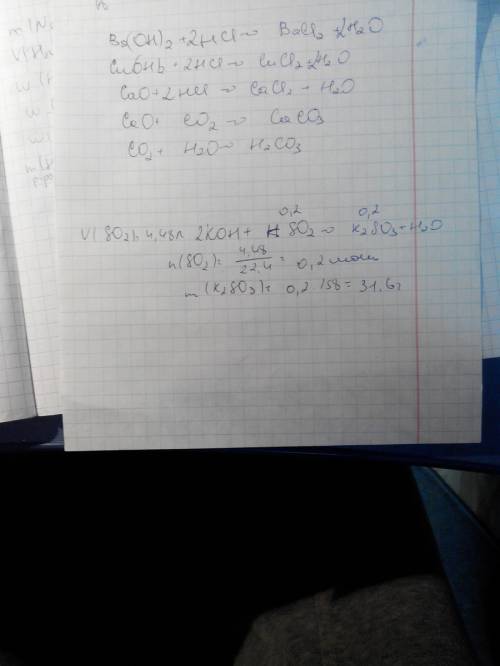 Ba(OH)2 + 2HCl → BaCl2 + 2H2O
Cu(OH)2 + 2HCl → CuCl2 + 2H2O
CaO + 2HCl → CaCl2 + H2O
CaO + CO2 → CaCO3
CO2 + H2O → H2CO3
0,2 0,2
V(SO2) = 4,48л 2KOH + SO2 → K2SO3 + H2O
n(SO2) = 4,48 / 22,4 = 0,2 моль
m(K2SO3) = 0,2 · 158 = 31,6г